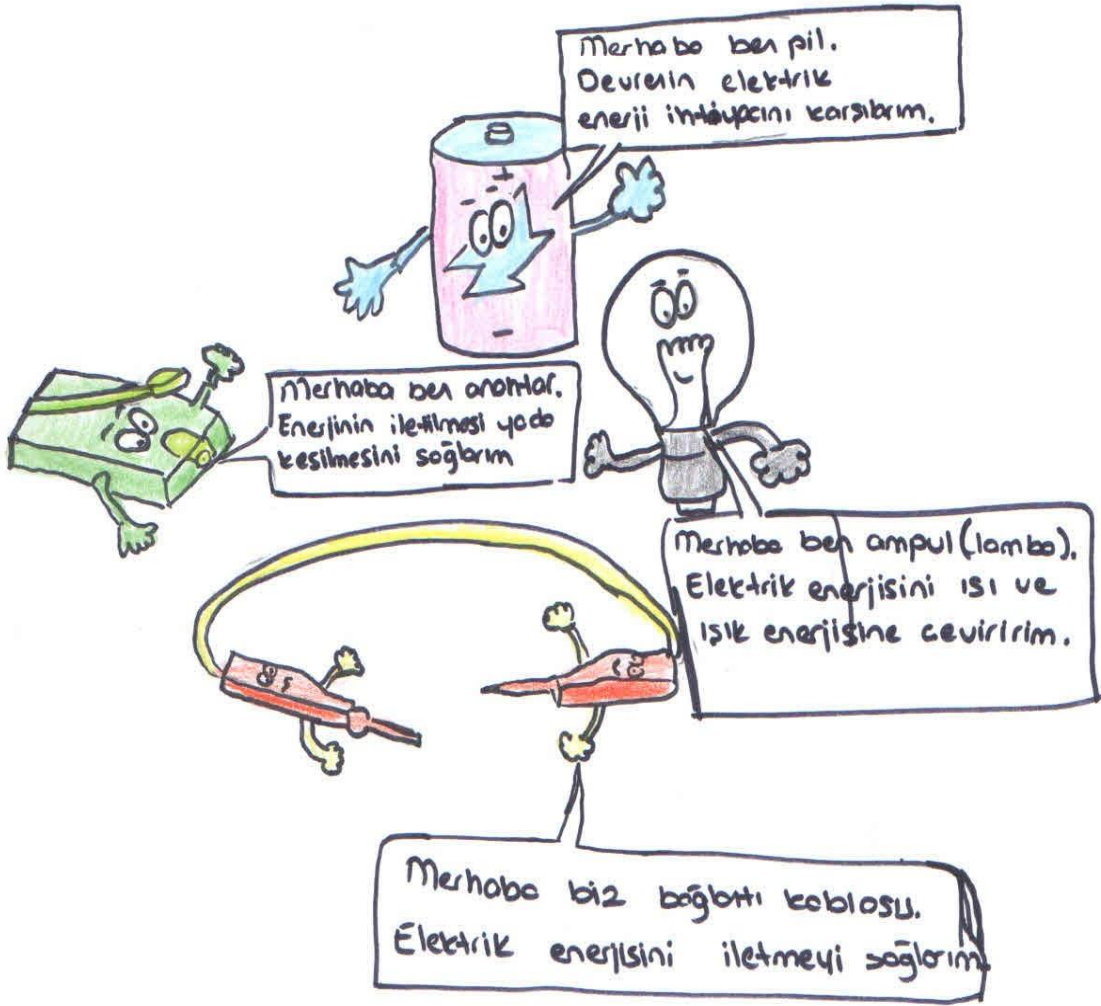 Merhaba ben pil.
Devrenin elektrik
enerji ihtiyacını karşılarım.
+
-
Merhaba ben anahtar.
Enerjinin iletilmesi yada
kesilmesini sağlarım
Merhaba ben ampul (lamba).
Elektrik enerjisini ısı ve
ışık enerjisine çeviririm.
Merhaba biz bağlantı kablosu.
Elektrik enerjisini iletmeyi sağlarım.